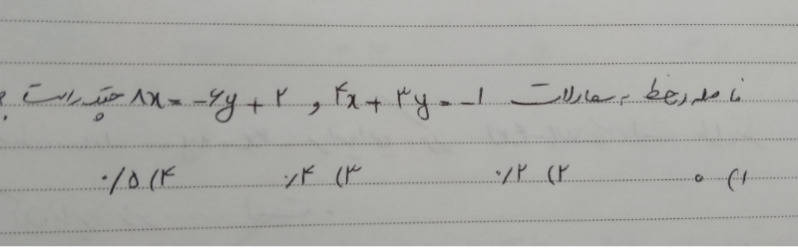 فاصله دو خط به معادلات ۴x + ۳y = -۱ , ۸x = -۶y + ۲ چقدر است ؟
۱) ۰ ۲) ۰/۲ ۳) ۰/۴ ۴) ۰/۵